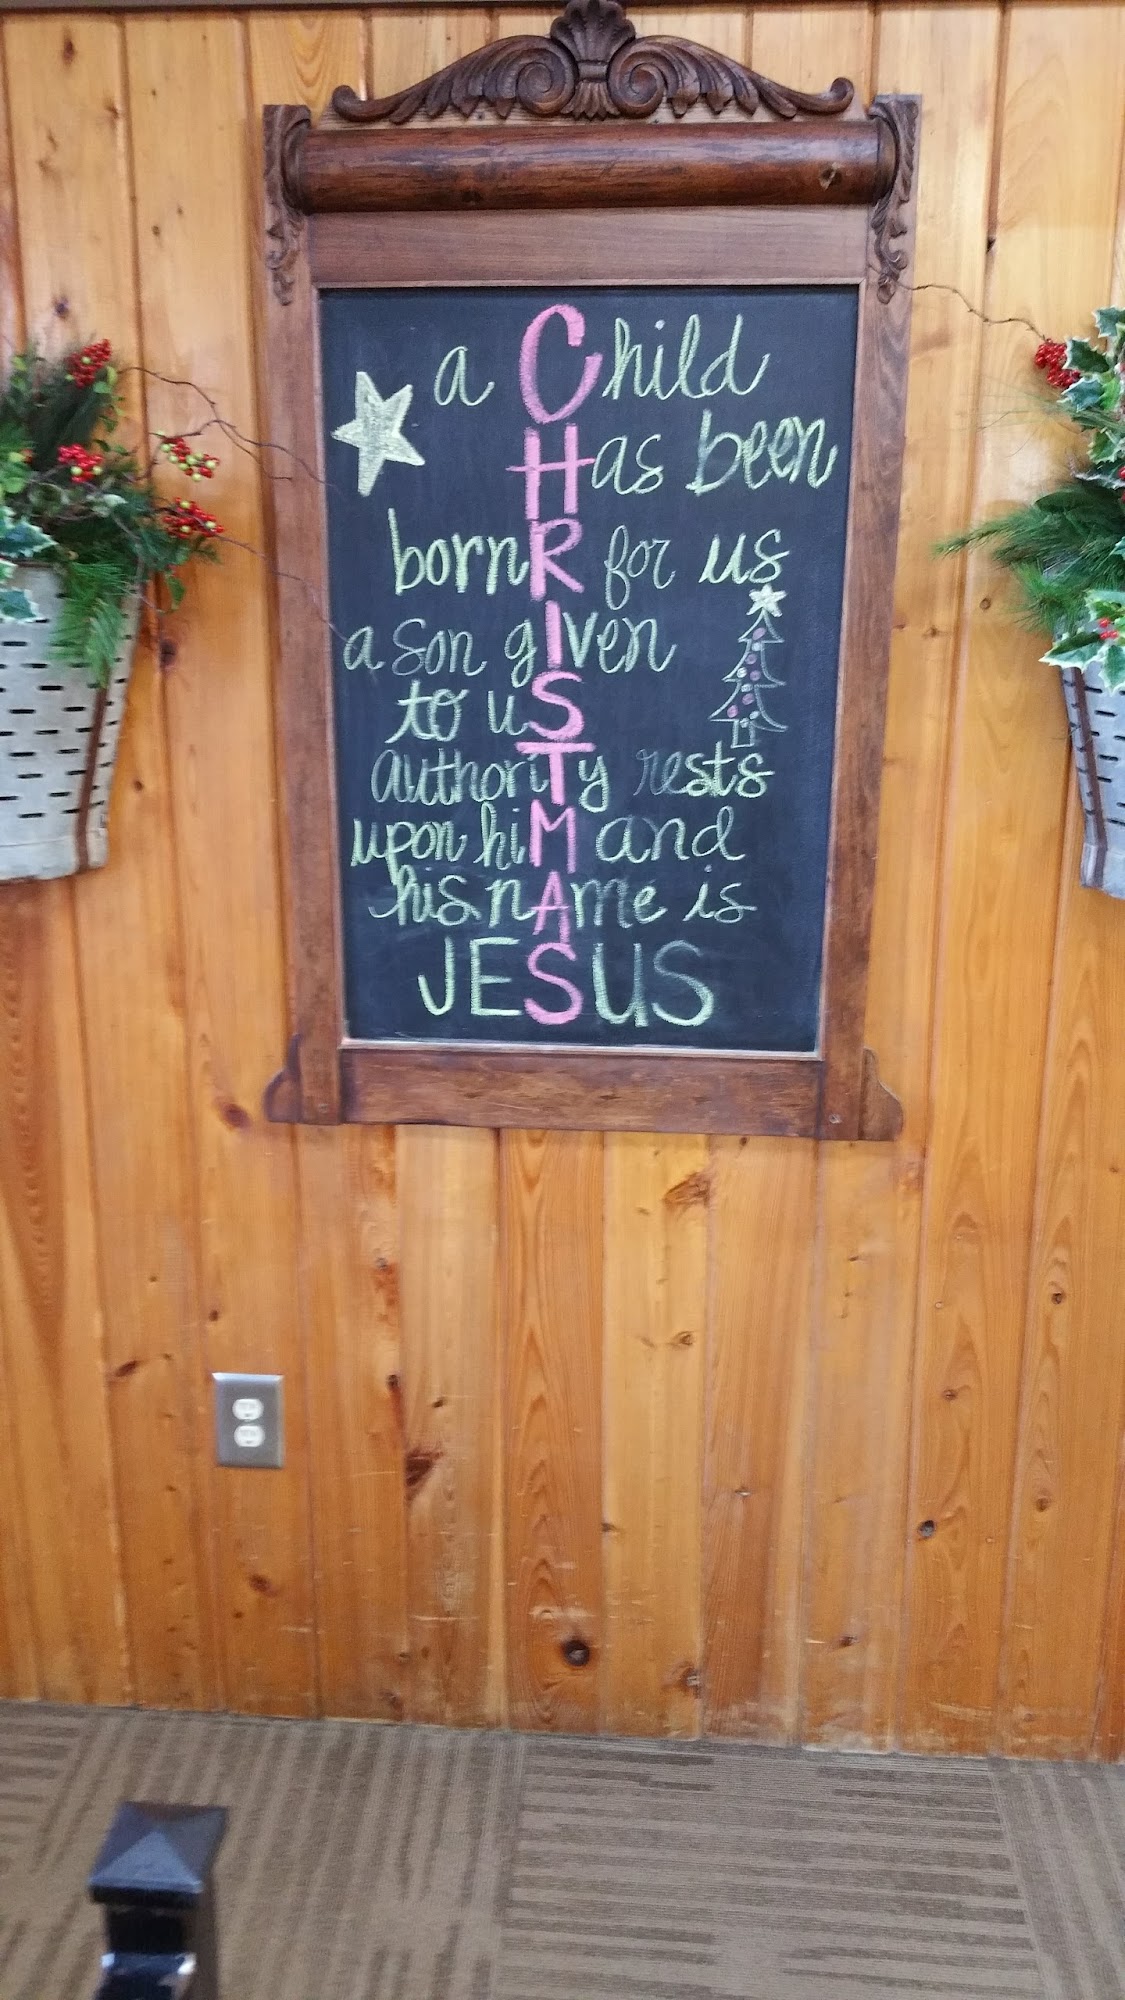 a Child
Has been
bornR for us
a son gIven
to uS
authoriTy rests
upon hiM and
his nAme is
JESUS